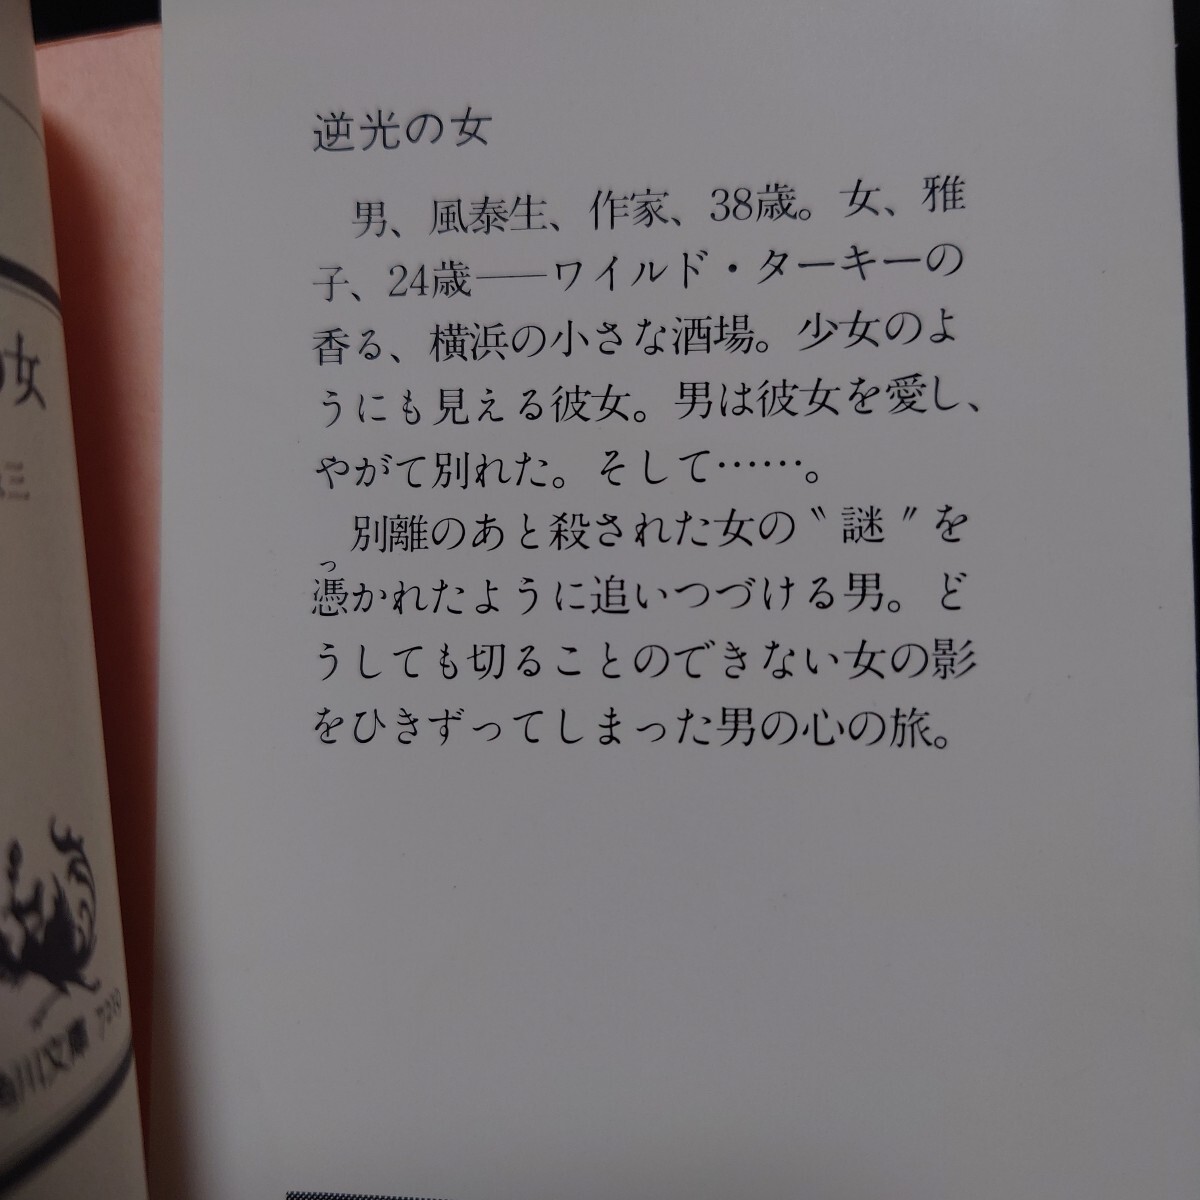 逆光の女
男、風泰生、作家、38歳。女、雅
子、24歳――ワイルド・ターキーの
香る、横浜の小さな酒場。少女のよ
うにも見える彼女。男は彼女を愛し、
やがて別れた。そして……。
別離のあと殺された女の〝謎〟を
憑かれたように追いつづける男。ど
うしても切ることのできない女の影
をひきずってしまった男の心の旅。
の女
三
川文庫